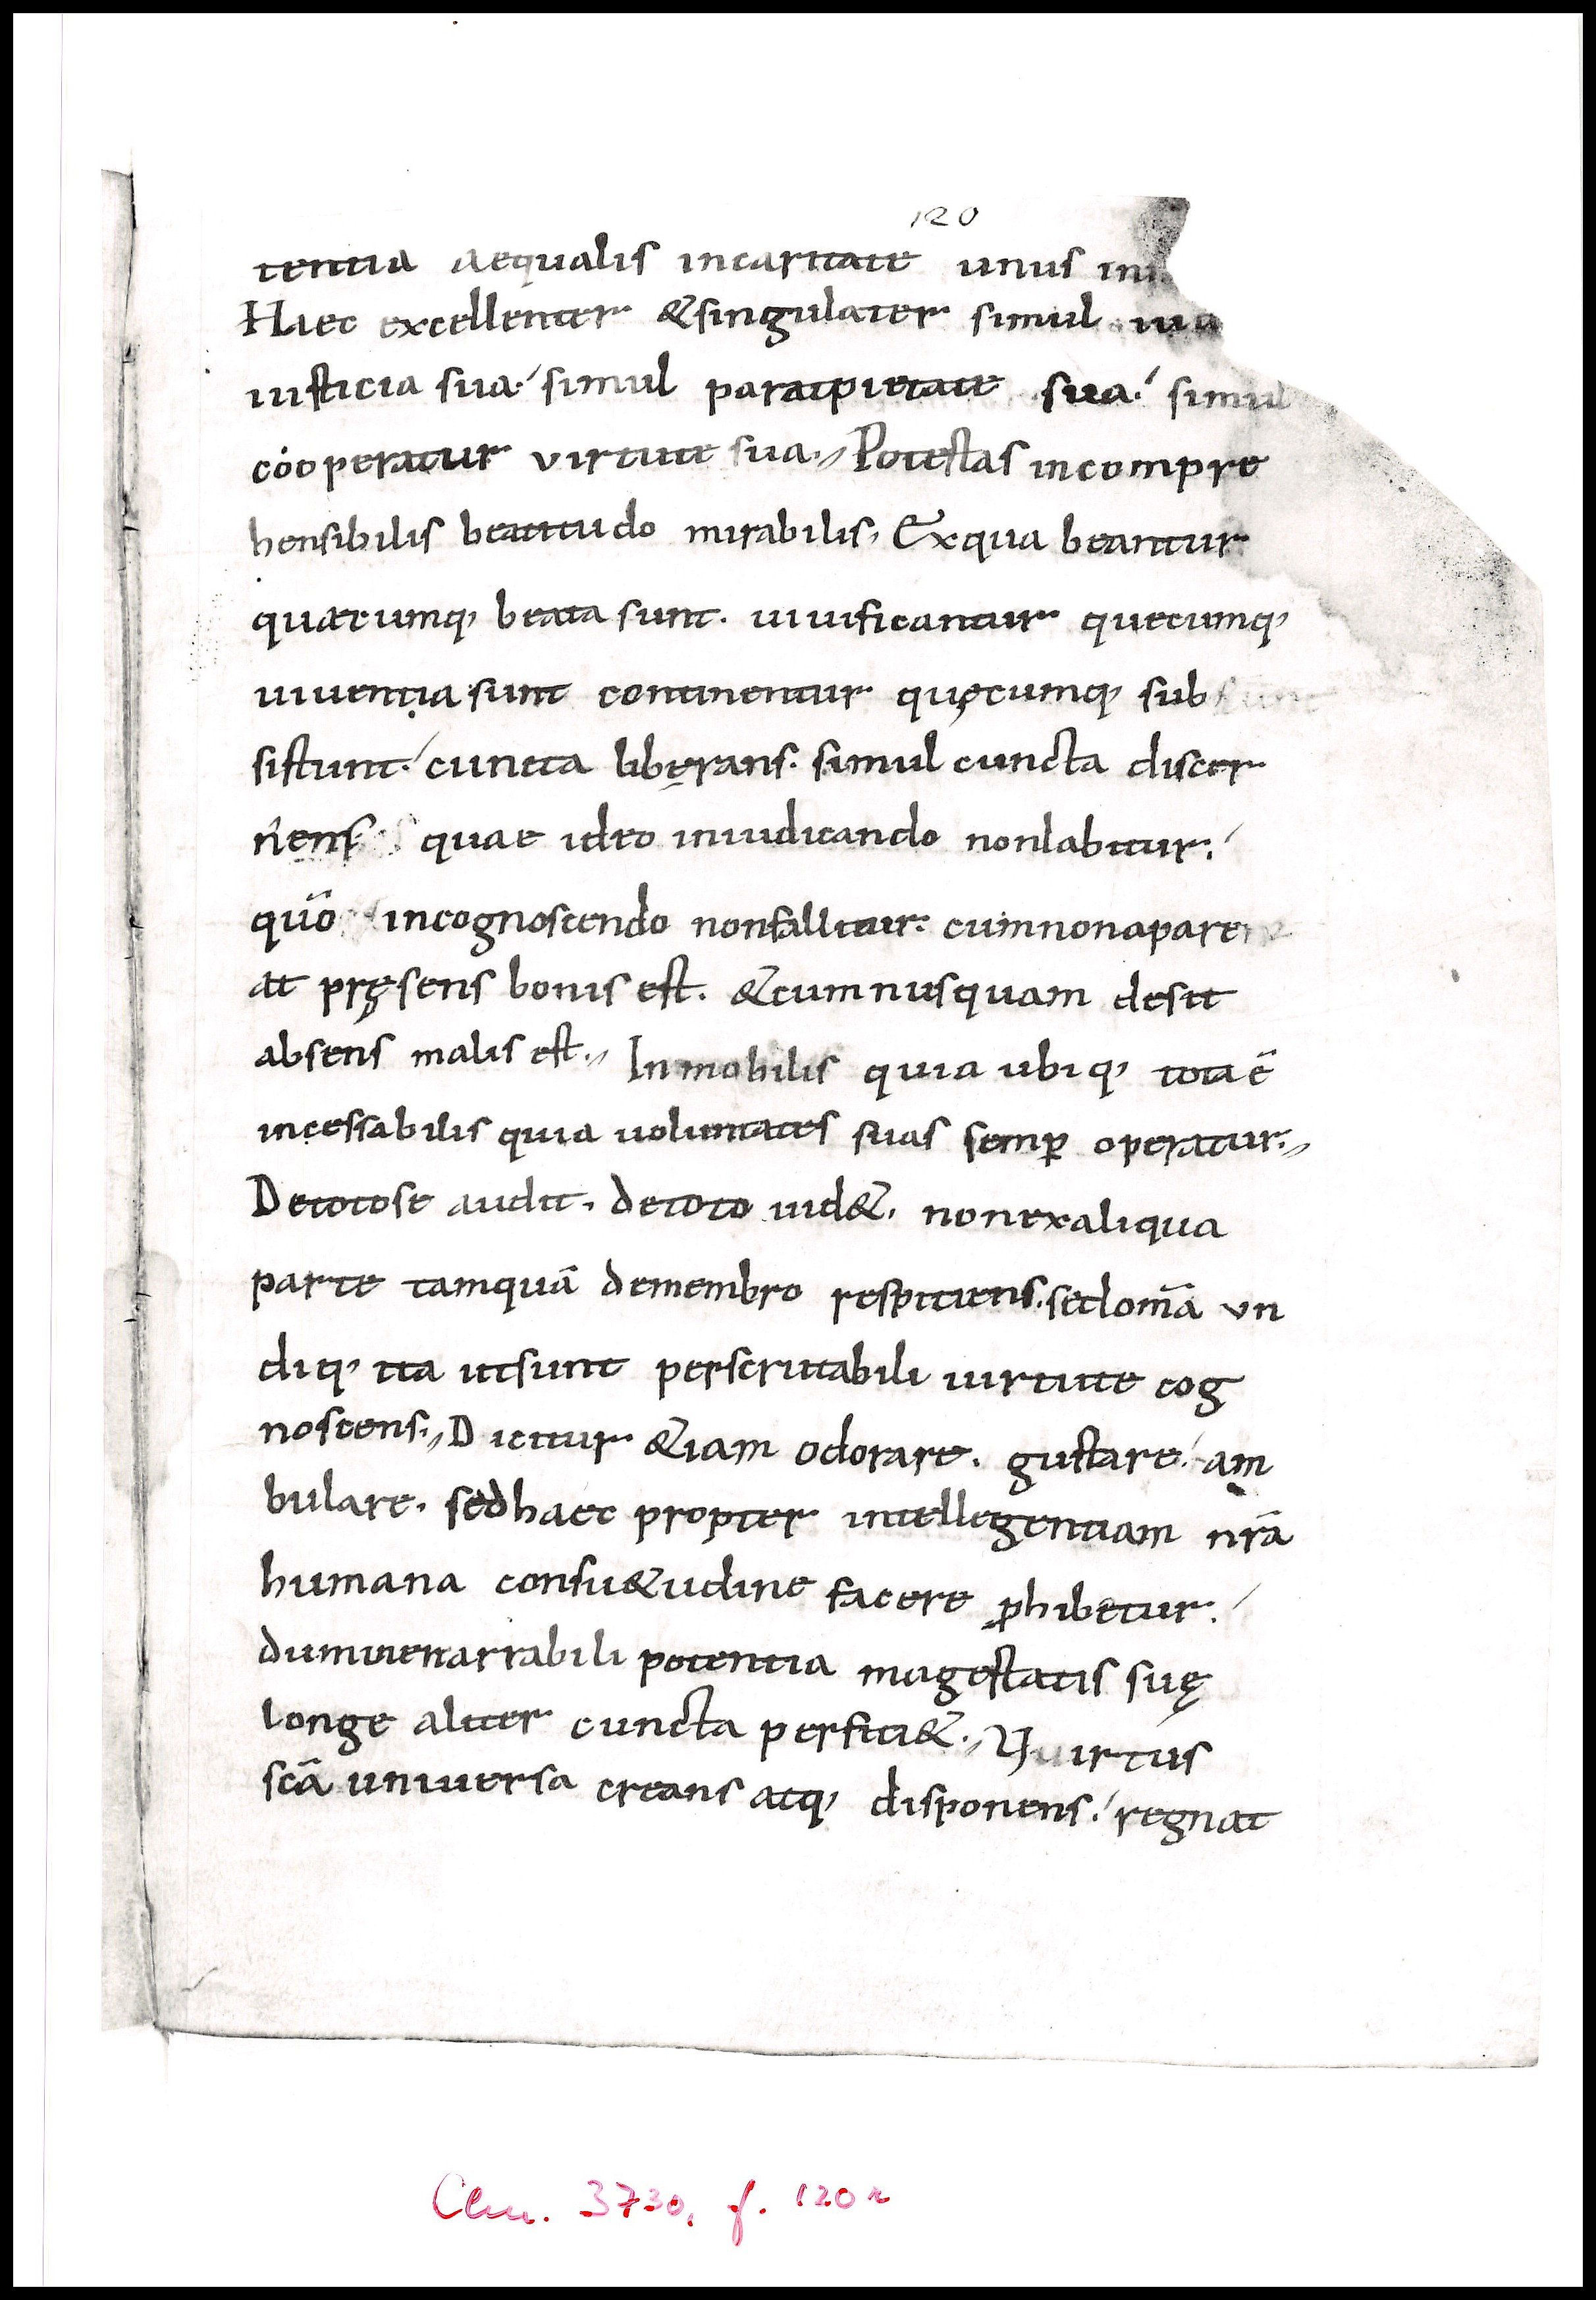 120
tentia aequalis incaritate unus in
Haec excellenter &singulater simul
iusticia sua. simul paratpietate sua. simul
cooperatur virtute sua. Potestas incompre
hensibilis beatitudo mirabilis, Exqua beantur
quaecumq, beata sunt. uiuificantur quecumq,
uiuentia sunt continentur quęcumq, sub
sistunt. cuncta liberans. simul cuncta discer
nens quae ideo iniudicando nonlabitur.
quō incognoscendo nonfallitur. cumnonapare
at pręsens bonis est. &cumnusquam desit
absens malis est. Inmobilis quia ubiq, tota ē
incessabilis quia voluntates suas semp̄ operatur.
Detotose audit. detoto uid&. nonexaliqua
parte tamquā demembro respitiens. sedom̄a vn
diq, ita utsunt perscrutabili uirtute cog
noscens. Dicitur &iam odorare. gustare. am
bulare. sedhaec propter intellegentiam nr̄a
humana consu&udine facere p̱hibetur.
duminenarrabili potentia magestatis suę
longe aliter cuncta perfici&. Quirtus
scā universa creans atq, disponens. regnat
Clm. 3730, f. 120r